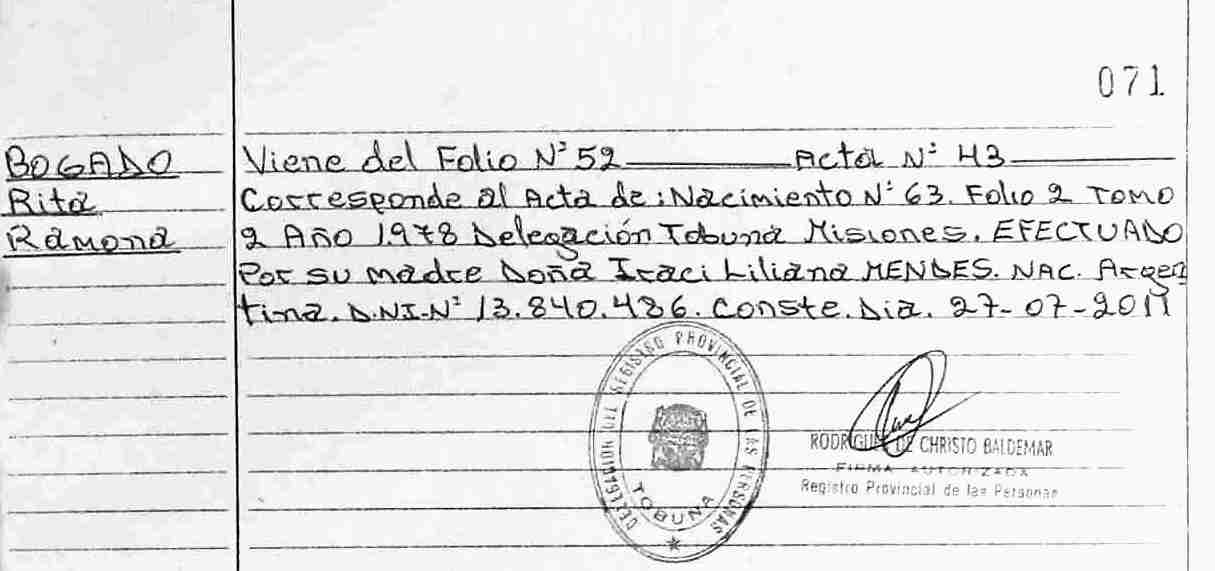 071
BOGADO
Rita
Ramona
Viene del Folio N° 52 Acta N° 43
Corresponde al Acta de: Nacimiento N° 63. Folio 2 TOMO
2 Año 1.978 Delegación Tobuna Misiones. EFECTUADO
Por su madre Doña Iraci Liliana MENDES. NAC. Argen
tina. D.N.I. N° 13.840.486. Conste. Dia. 27-07-2011
DELEGACION DEL REGISTRO PROVINCIAL DE LAS PERSONAS
TOBUNA
DE CHRISTO BALDEMAR
FIRMA AUTORIZADA
Registro Provincial de las Personas